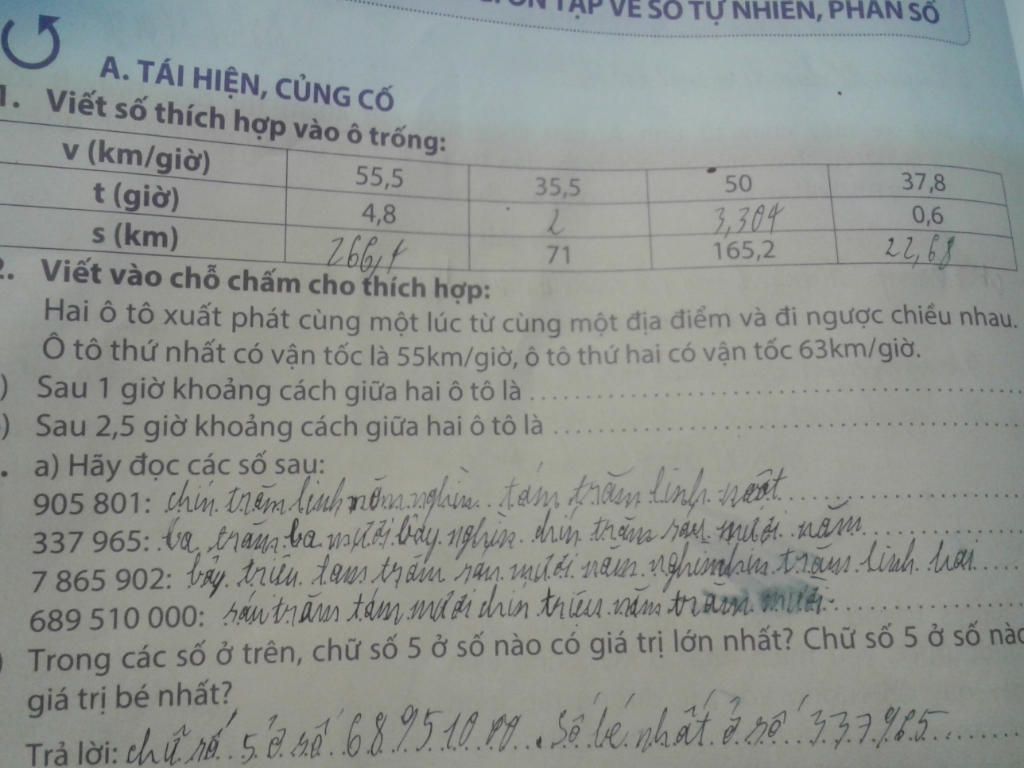 ÔN TẬP VỀ SỐ TỰ NHIÊN, PHÂN SỐ
A. TÁI HIỆN, CỦNG CỐ
1. Viết số thích hợp vào ô trống:
v (km/giờ) 55,5 35,5 50 37,8
t (giờ) 4,8 2 3,304 0,6
s (km) 266,4 71 165,2 22,68
2. Viết vào chỗ chấm cho thích hợp:
Hai ô tô xuất phát cùng một lúc từ cùng một địa điểm và đi ngược chiều nhau.
Ô tô thứ nhất có vận tốc là 55km/giờ, ô tô thứ hai có vận tốc 63km/giờ.
) Sau 1 giờ khoảng cách giữa hai ô tô là
) Sau 2,5 giờ khoảng cách giữa hai ô tô là
. a) Hãy đọc các số sau:
905 801: chín trăm linh năm nghìn tám trăm linh một
337 965: ba trăm ba mươi bảy nghìn chín trăm sáu mươi năm
7 865 902: bảy triệu tám trăm sáu mươi năm nghìn chín trăm linh hai
689 510 000: sáu trăm tám mươi chín triệu năm trăm mười
) Trong các số ở trên, chữ số 5 ở số nào có giá trị lớn nhất? Chữ số 5 ở số
giá trị bé nhất?
Trả lời: chữ số 5 ở số 689510 00. Số bé nhất ở số 337965